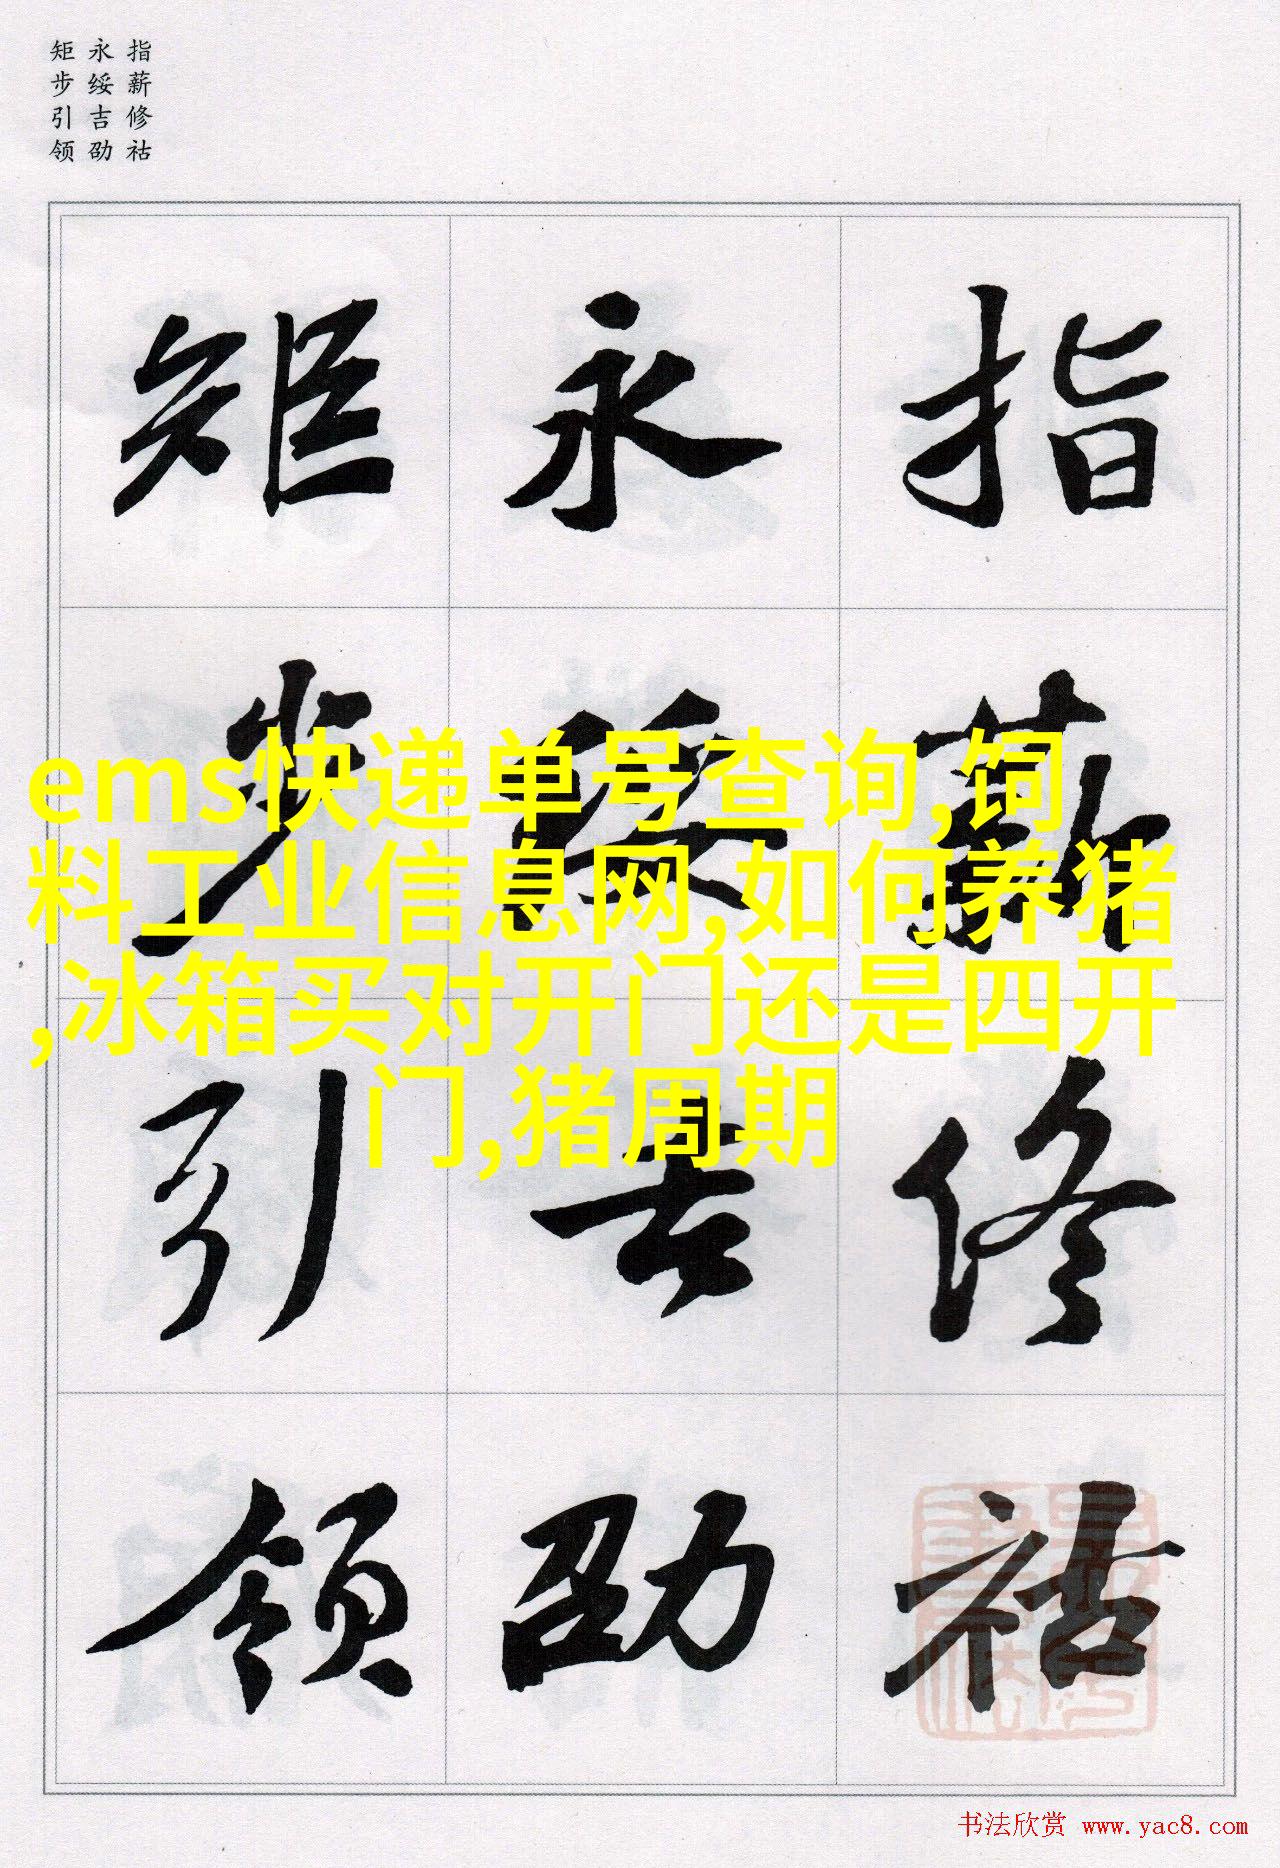 指薪修祜
永绥吉劭
矩步引领
指薪修祜
永绥吉劭
矩步引领
ems快递单号查询,饲
料工业信息网,如何养猪
,冰箱买对开门还是四开
门,猪周期
书法欣赏 www.yac8.com